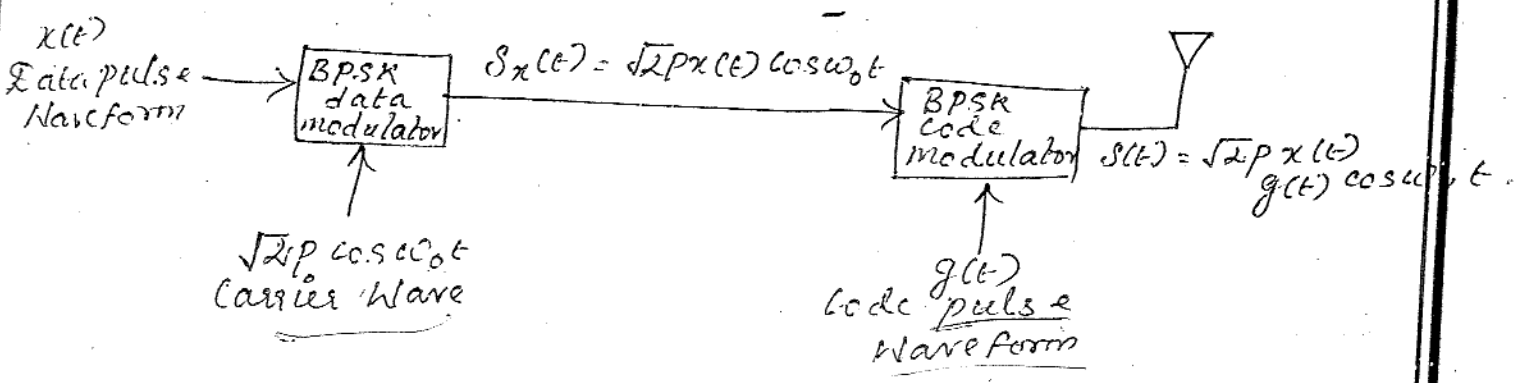 x(t)
Data pulse
Waveform
BPSK
data
modulator
Sx(t) = √2P x(t) cos ω₀t
BPSK
code
modulator
S(t) = √2P x(t)
g(t) cos ω₀t.
√2P cos ω₀t
Carrier Wave
g(t)
Code pulse
Waveform